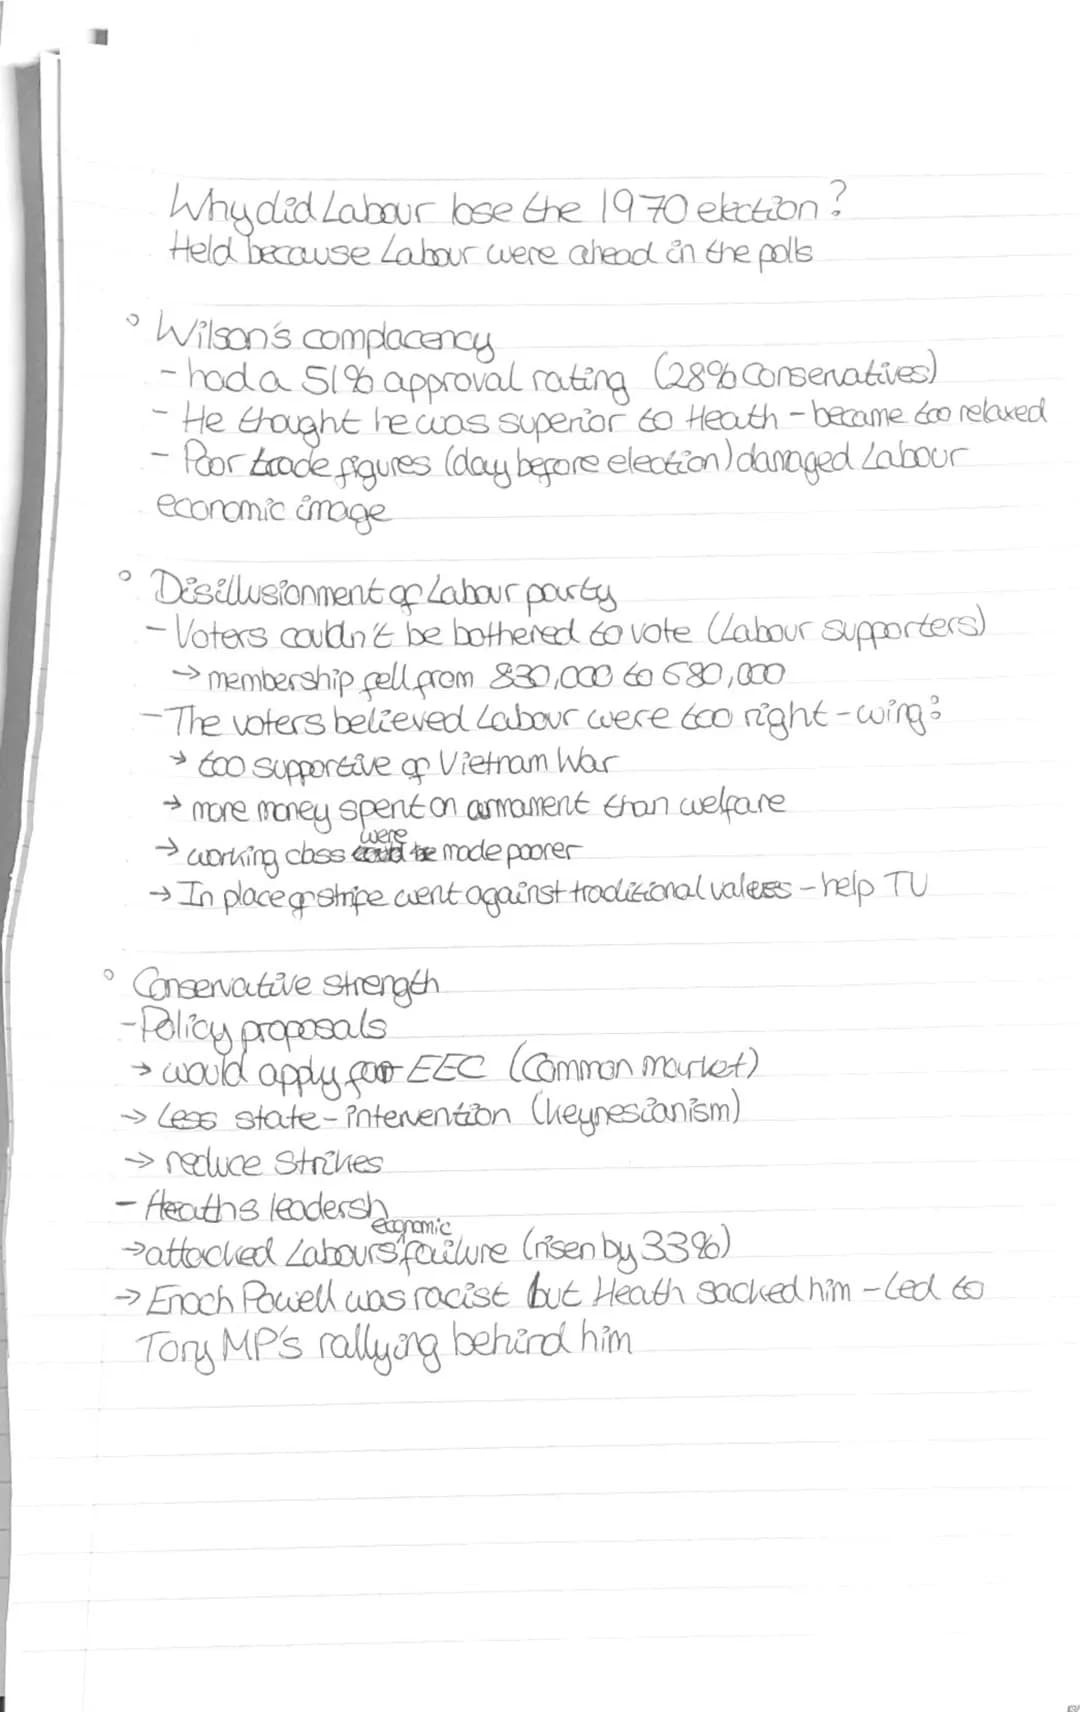 Why did Labour lose the 1970 election?
Held because Labour were ahead in the polls
◦ Wilson's complacency
- had a 51% approval rating (28% Conservatives)
- He thought he was superior to Heath - became too relaxed
- Poor trade figures (day before election) damaged Labour
economic image
◦ Disillusionment of Labour party
- Voters couldn't be bothered to vote (Labour supporters)
→ membership fell from 830,000 to 680,000
- The voters believed Labour were too right-wing:
→ too supportive of Vietnam War
→ more money spent on armament than welfare
→ working class were made poorer
→ In place of stripe went against traditional values - help TU
◦ Conservative strength
- Policy proposals
→ would apply for EEC (Common market)
→ Less state-intervention (keynesianism)
→ reduce strikes
- Heaths leadersh
→ attacked Labours economic failure (risen by 33%)
→ Enoch Powell was racist but Heath sacked him - Led to
Tory MP's rallying behind him